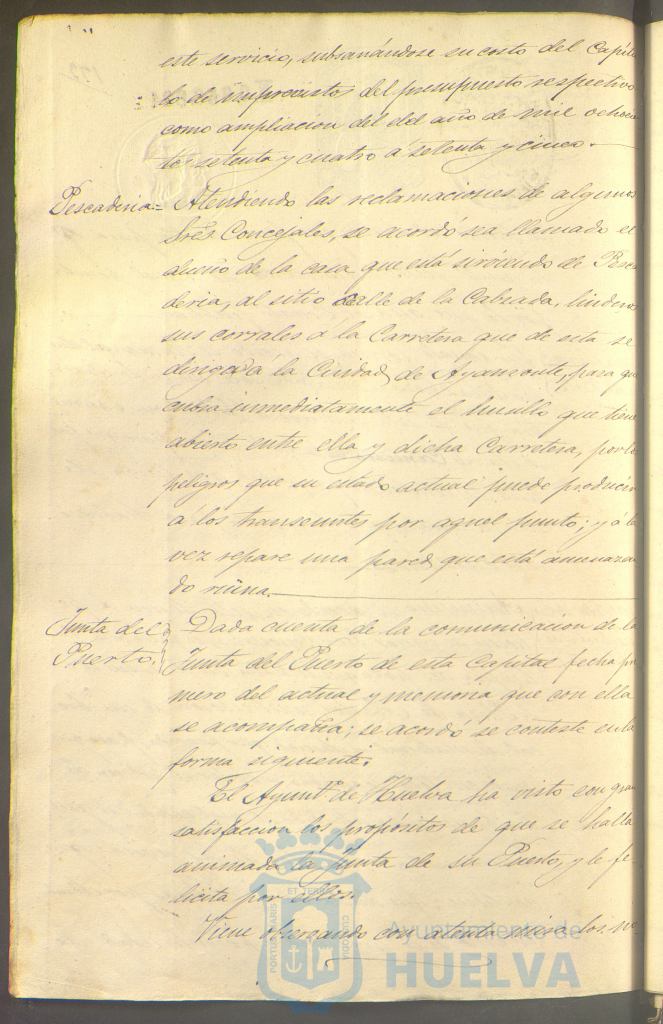 este servicio, subsanándose su costo del Capítu
lo de imprevistos del presupuesto respectivo
como ampliacion del del año de mil ochocien
tos setenta y cuatro á setenta y cinco.
Pescaderia= Atendiendo las reclamaciones de algunos
Sres. Concejales, se acordó sea llamado el
dueño de la casa que está sirviendo de Pesca
deria, al sitio calle de la Calzada, lindera
sus corrales á la Carretera que de esta se
dirige á la Ciudad de Ayamonte, para que
cubra inmediatamente el husillo que tiene
abierto entre ella y dicha Carretera, por los
peligros que su estado actual puede producir
á los transeuntes por aquel punto; y á la
vez repare una pared que está amenazan
do ruina.
Junta del Puerto. Dada cuenta de la comunicacion de la
Junta del Puerto de esta Capital fecha pri
mero del actual y memoria que con ella
se acompaña; se acordó se conteste en la
forma siguiente.
El Ayuntº de Huelva ha visto con gran
satisfaccion los propósitos de que se halla
animada la Junta de su Puerto, y le fe-
licita por ellos.
Viene observando con atenta mira los
PORTUS MARIS ET TERRAE CUSTODIA
Ayuntamiento de
HUELVA